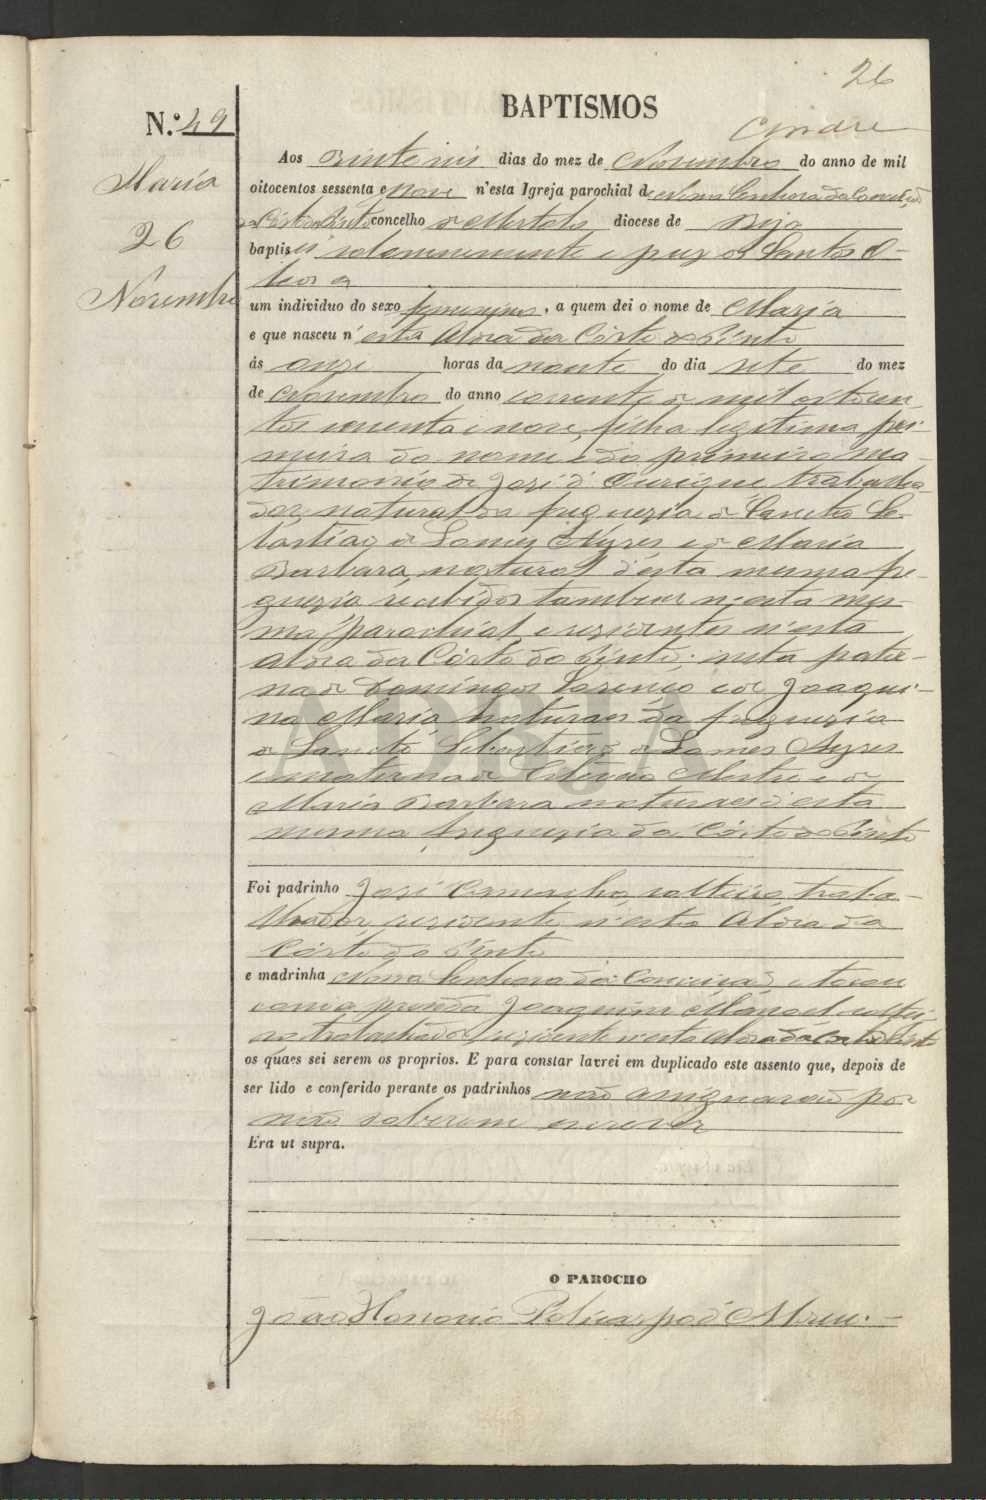 26
BAPTISMOS
N.º 49
Conare
Aos vinte seis dias do mez de Novembro do anno de mil
Maria
oitocentos sessenta e nove n'esta Igreja parochial de Nossa Senhora da Conceição
26
da Côrte do Pinto concelho de Mertola diocese de Beja
baptisei solemnemente e puz os Santos O-
leos a
Novembro
um individuo do sexo femenino, a quem dei o nome de Maria
e que nasceu n'esta Aldea da Côrte do Pinto
ás onze horas da noute do dia sete do mez
de Novembro do anno corrente de mil oitocen-
tos secenta e nove, filha legitima pri-
meira do nome e do primeiro ma-
trimonio de José d'Ourique trabalha-
dor, natural da freguezia de Sancto Se-
bastião de Gomes Ayres e de Maria
Barbara, natural d'esta mesma fre-
guezia recebidos tambem n'esta mes-
ma parochial e rezidentes n'esta
Aldea da Côrte do Pinto; neta pater-
na de Domingos Lorenço e de Joaqui-
na Maria, naturaes da freguezia
de Sancto Sebastião de Gomes Ayres
e materna de Estevão Mestre e de
Maria Barbara naturaes d'esta
mesma freguezia da Côrte do Pinto
Foi padrinho José Camacho, solteiro, traba-
lhador, rezidente n'esta Aldea da
Côrte do Pinto
e madrinha Nossa Senhora da Conceição, e tocou
com a prenda Joaquim Manoel soltei-
ro trabalhador, rezidente n'esta Aldea da Corte do Pinto
os quaes sei serem os proprios. E para constar lavrei em duplicado este assento que, depois de
ser lido e conferido perante os padrinhos não assignarão por
não saberem escrever
Era ut supra.
O PAROCHO
João Honorio Policarpo d'Abreu.
ADBJA